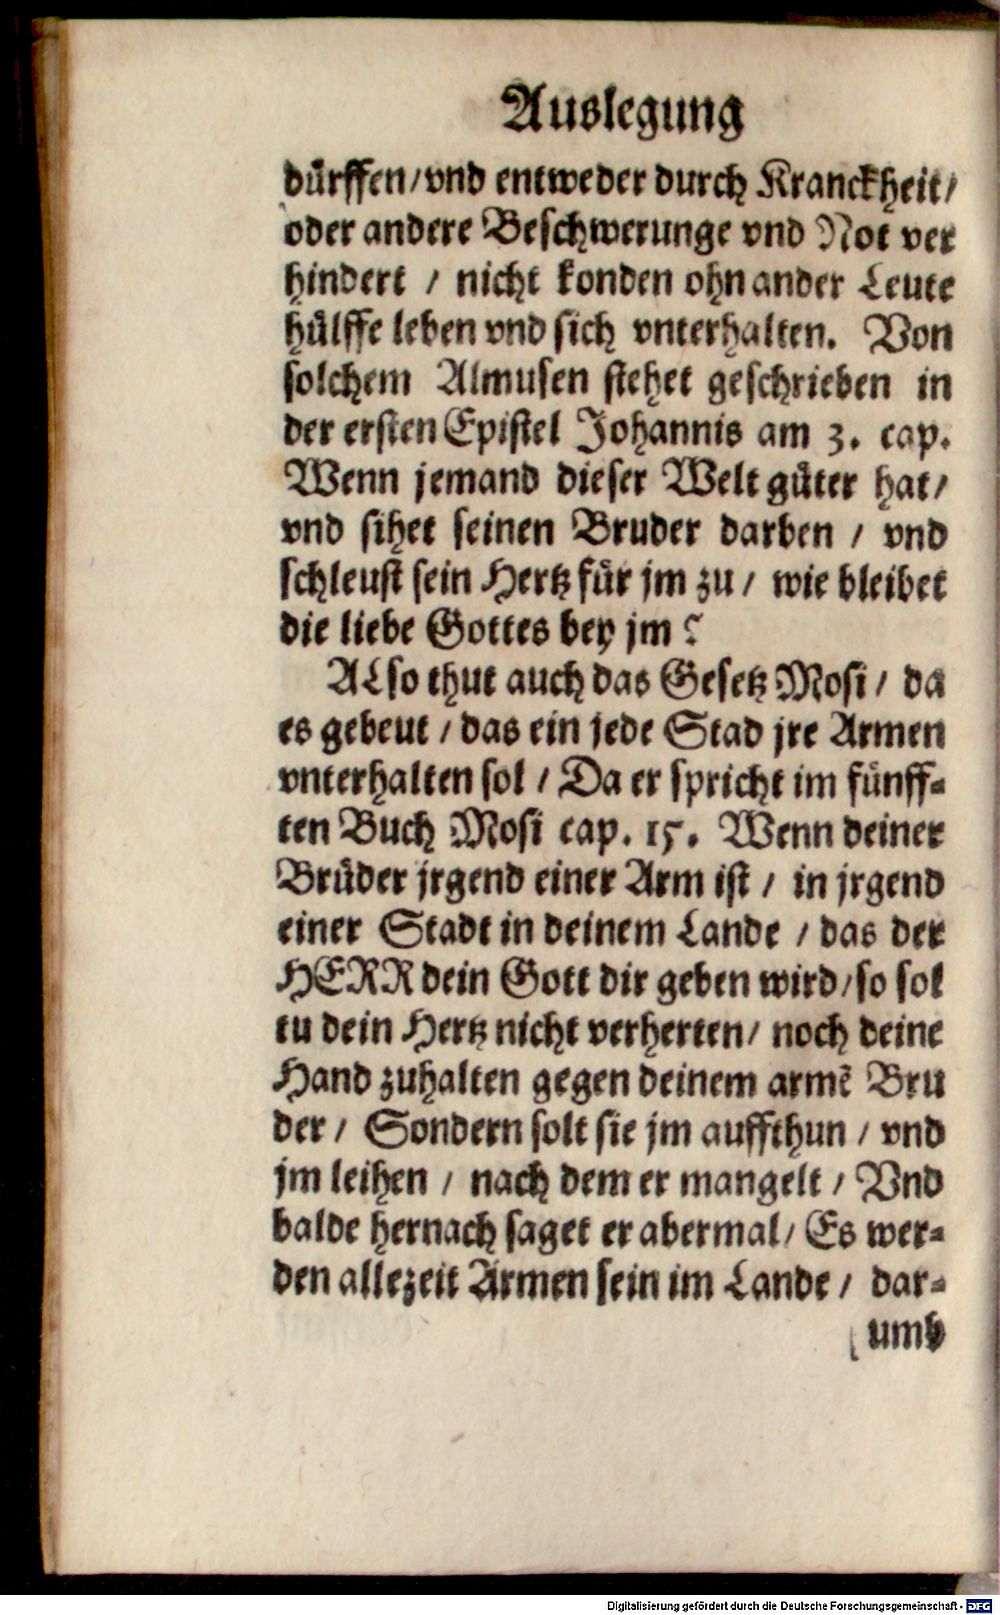 Auslegung
dürffen/vnd entweder durch Kranckheit/
oder andere Beschwerunge vnd Not ver
hindert / nicht konden ohn ander Leute
hülffe leben vnd sich vnterhalten. Von
solchem Almusen stehet geschrieben in
der ersten Epistel Johannis am 3. cap.
Wenn jemand dieser Welt güter hat/
vnd sihet seinen Bruder darben / vnd
schleust sein Hertz für jm zu / wie bleibet
die liebe Gottes bey jm?
ALso thut auch das Gesetz Mosi / da
es gebeut / das ein jede Stad jre Armen
vnterhalten sol / Da er spricht im fünff-
ten Buch Mosi cap. 15. Wenn deiner
Brüder jrgend einer Arm ist / in jrgend
einer Stadt in deinem Lande / das der
HERR dein Gott dir geben wird/so sol
tu dein Hertz nicht verherten/ noch deine
Hand zuhalten gegen deinem armẽ Bru
der / Sondern solt sie jm auffthun / vnd
jm leihen / nach dem er mangelt / Vnd
balde hernach saget er abermal/ Es wer-
den allezeit Armen sein im Lande / dar-
umb
Digitalisierung gefördert durch die Deutsche Forschungsgemeinschaft - DFG